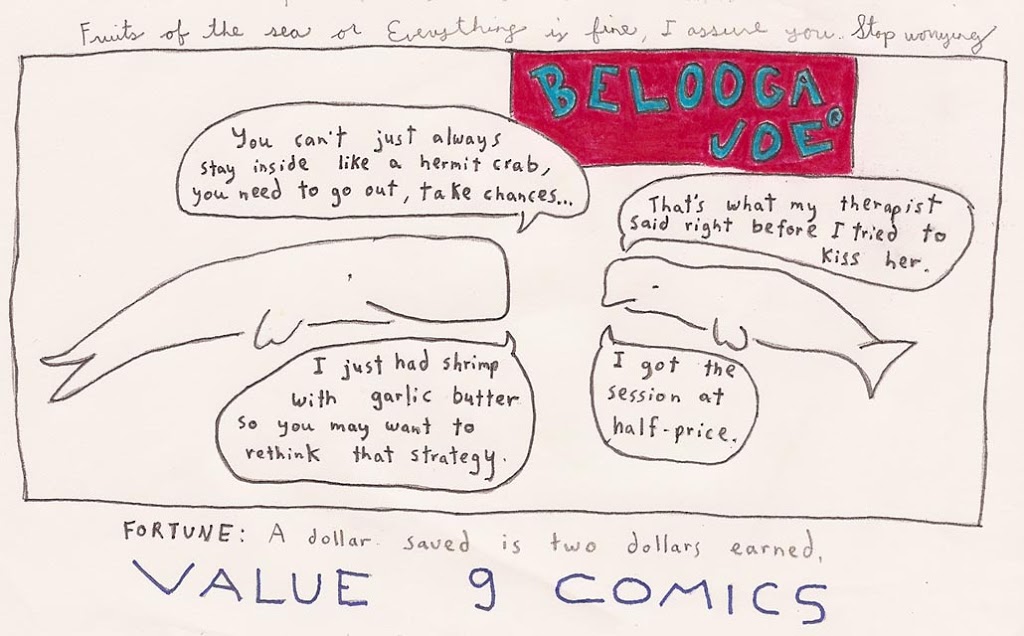 Fruits of the sea or Everything is fine, I assure you. Stop worrying
BELOOGA
JOE®
You can't just always
stay inside like a hermit crab,
you need to go out, take chances...
That's what my therapist
said right before I tried to
kiss her.
I just had shrimp
with garlic butter
so you may want to
rethink that strategy.
I got the
session at
half-price.
FORTUNE: A dollar saved is two dollars earned.
VALUE 9 COMICS